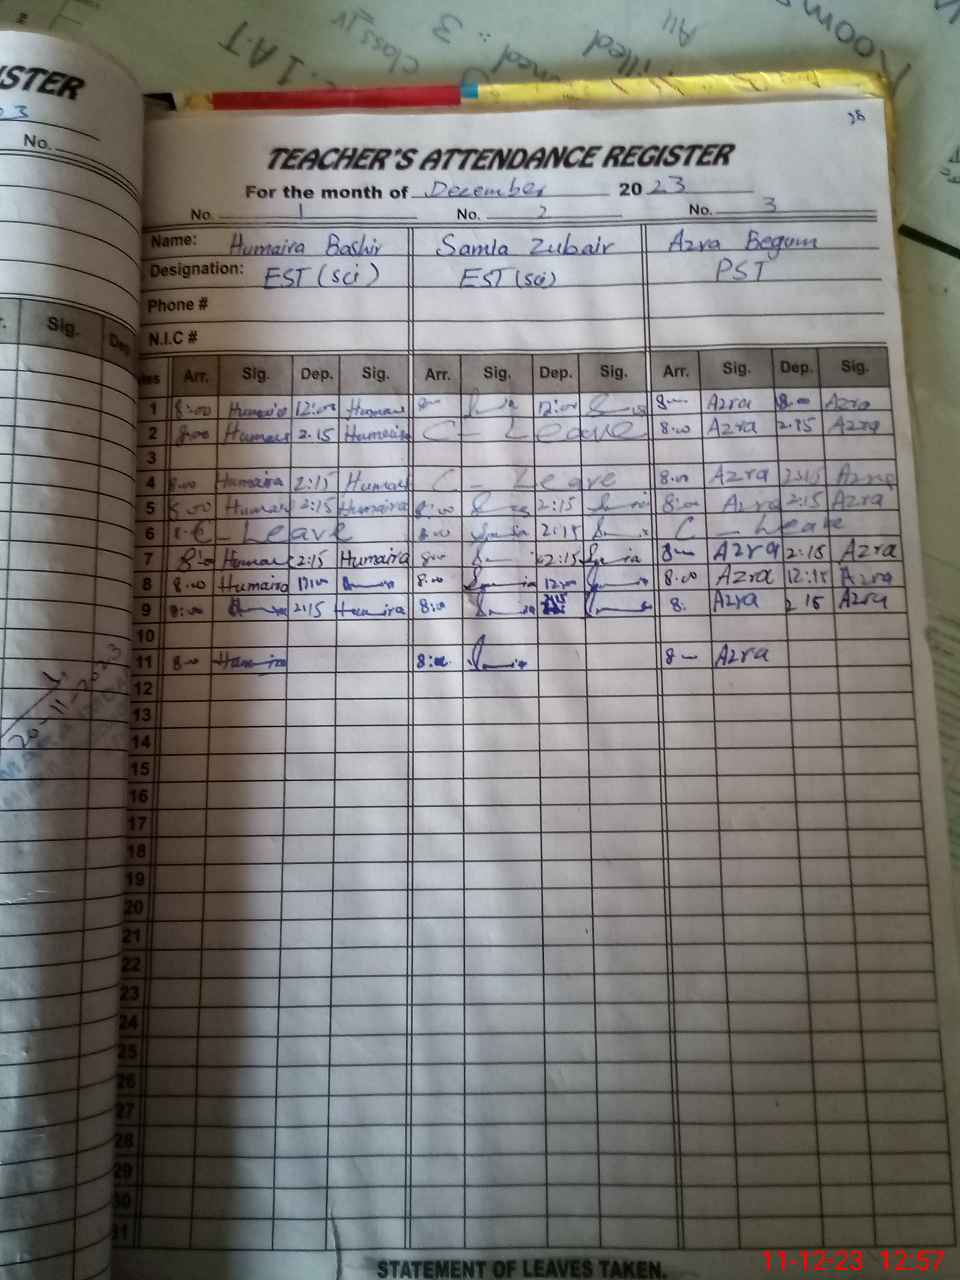 All
Room
Class IV
1 A.T
ISTER
No.
Sig.
Dep
20-11-2023
28
TEACHER'S ATTENDANCE REGISTER
For the month of December 2023
No. 1 No. 2 No. 3
Name: Humaira Bashir Samia Zubair Azra Begum
Designation: EST (sci) EST (sci) PST
Phone #
N.I.C #
Arr. Sig. Dep. Sig. Arr. Sig. Dep. Sig. Arr. Sig. Dep. Sig.
1 8:00 Humaira 12:00 Humaira 12:00 Azra 8:00 Azra
2 8:00 Humaira 2:15 Humaira C - Leave 8:00 Azra 2:15 Azra
3
4 8:00 Humaira 2:15 Humaira C - Leave 8:00 Azra 2:15 Azra
5 8:00 Humaira 2:15 Humaira 8:00 2:15 8:00 Azra 2:15 Azra
6 C - Leave 8:00 2:15 C - Leave
7 8:00 Humaira 2:15 Humaira 2:15 Azra 2:15 Azra
8 8:00 Humaira 12:00 8:00 12:00 8:00 Azra 12:15 Azra
9 8:00 2:15 Humaira 8:00 8: Azra 2 15 Azra
10
11 8:00 Humaira 8:00 Azra
12
13
14
15
16
17
18
19
20
21
22
23
24
25
26
27
28
29
30
31
STATEMENT OF LEAVES TAKEN.
11-12-23 12:57